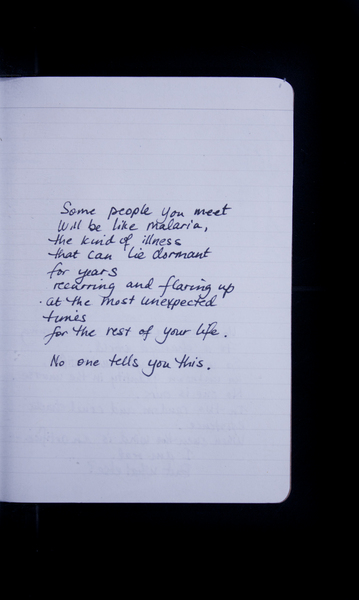 Some people you meet
Will be like malaria,
the kind of illness
that can lie dormant
for years
recurring and flaring up
at the most unexpected
times
for the rest of your life.
No one tells you this.